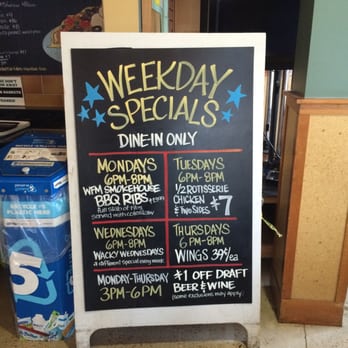 WEEKDAY
SPECIALS
DINE-IN ONLY
MONDAYS
6PM-8PM
WFM SMOKEHOUSE
BBQ RIBS
full slab of ribs
served with coleslaw
TUESDAYS
6PM-8PM
1/2 ROTISSERIE
CHICKEN
& TWO SIDES $7
WEDNESDAYS
6PM-8PM
WACKY WEDNESDAYS
a different special every week
THURSDAYS
6PM-8PM
WINGS 39¢/ea
MONDAY-THURSDAY
3PM-6PM
$1 OFF DRAFT
BEER & WINE
(some exclusions may apply)
RECYCLE
PLASTIC HERE
5